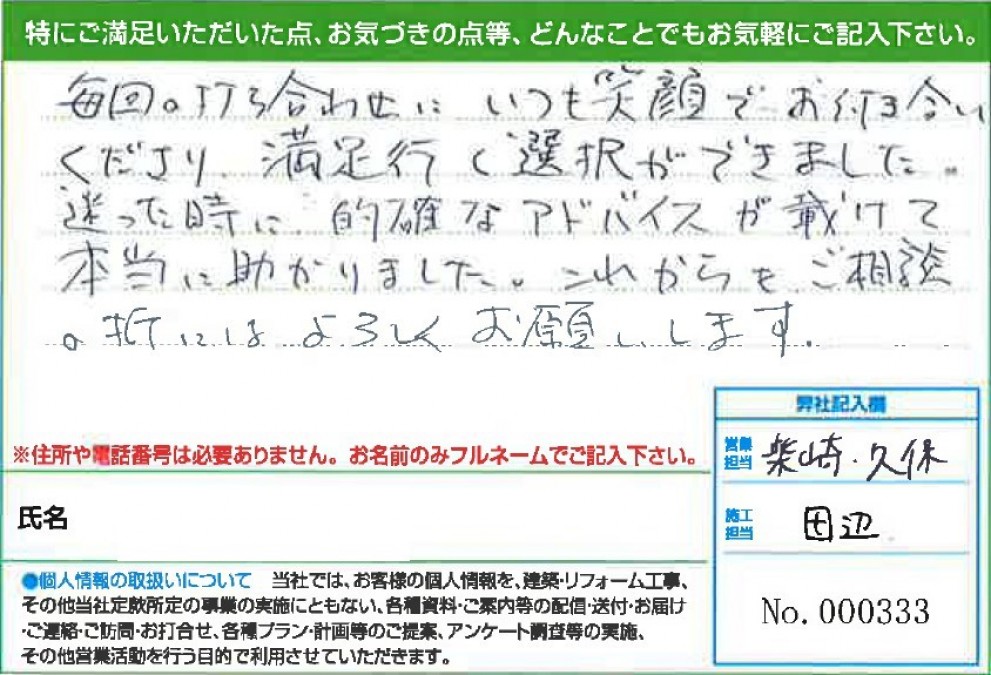 特にご満足いただいた点、お気づきの点等、どんなことでもお気軽にご記入下さい。
毎回の打ち合わせに いつも笑顔で お付き合い
くださり、満足行く選択ができました。
迷った時に 的確なアドバイスが載けて
本当に助かりました。これからもご相談
の折にはよろしくお願いします。
※住所や電話番号は必要ありません。お名前のみフルネームでご記入下さい。
氏名
●個人情報の取扱いについて 当社では、お客様の個人情報を、建築・リフォーム工事、
その他当社定款所定の事業の実施にともない、各種資料・ご案内等の配信・送付・お届け
・ご連絡・ご訪問・お打合せ、各種プラン・計画等のご提案、アンケート調査等の実施、
その他営業活動を行う目的で利用させていただきます。
弊社記入欄
営業担当 柴崎・久保
施工担当 田辺
No. 000333